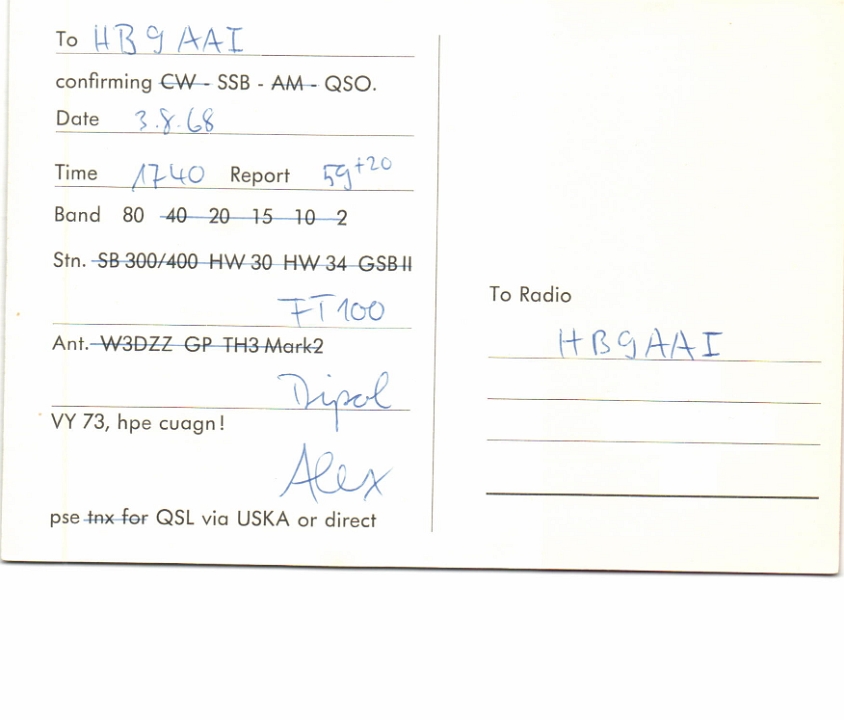 To HB9AAI
confirming CW - SSB - AM - QSO.
Date 3.8.68
Time 1740 Report 59+20
Band 80 40 20 15 10 2
Stn. SB 300/400 HW 30 HW 34 GSB II
FT100
Ant. W3DZZ GP TH3 Mark2
Dipol
VY 73, hpe cuagn!
Alex
pse tnx for QSL via USKA or direct
To Radio
HB9AAI